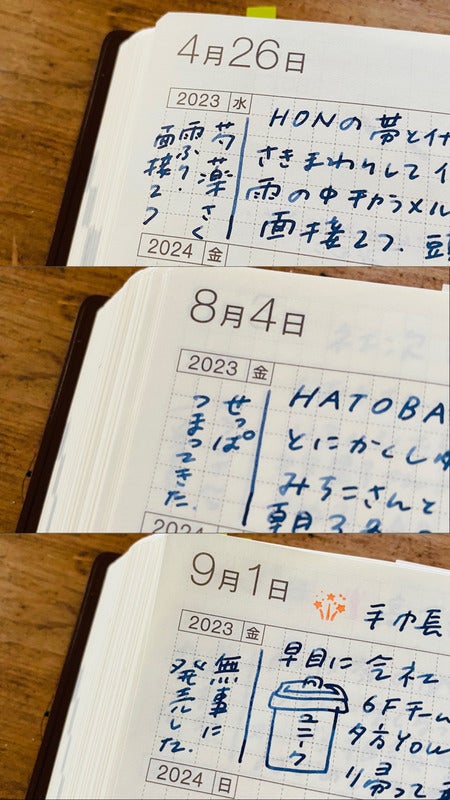 4月26日
2023 水
芍薬さく
雨ふり.
面接2つ
HONの夢と
さきまわりして
雨の中
面接2つ. 頭
2024 金
8月4日
2023 金
せっぱ
つまってきた.
HATOBA
とにかくしゅ
みちこさんと
朝
2024
9月1日
手帳
2023 金
無事に
発売した.
早目に会社
ユニーク
6Fチーム
夕方YOU
り帰って
2024 日